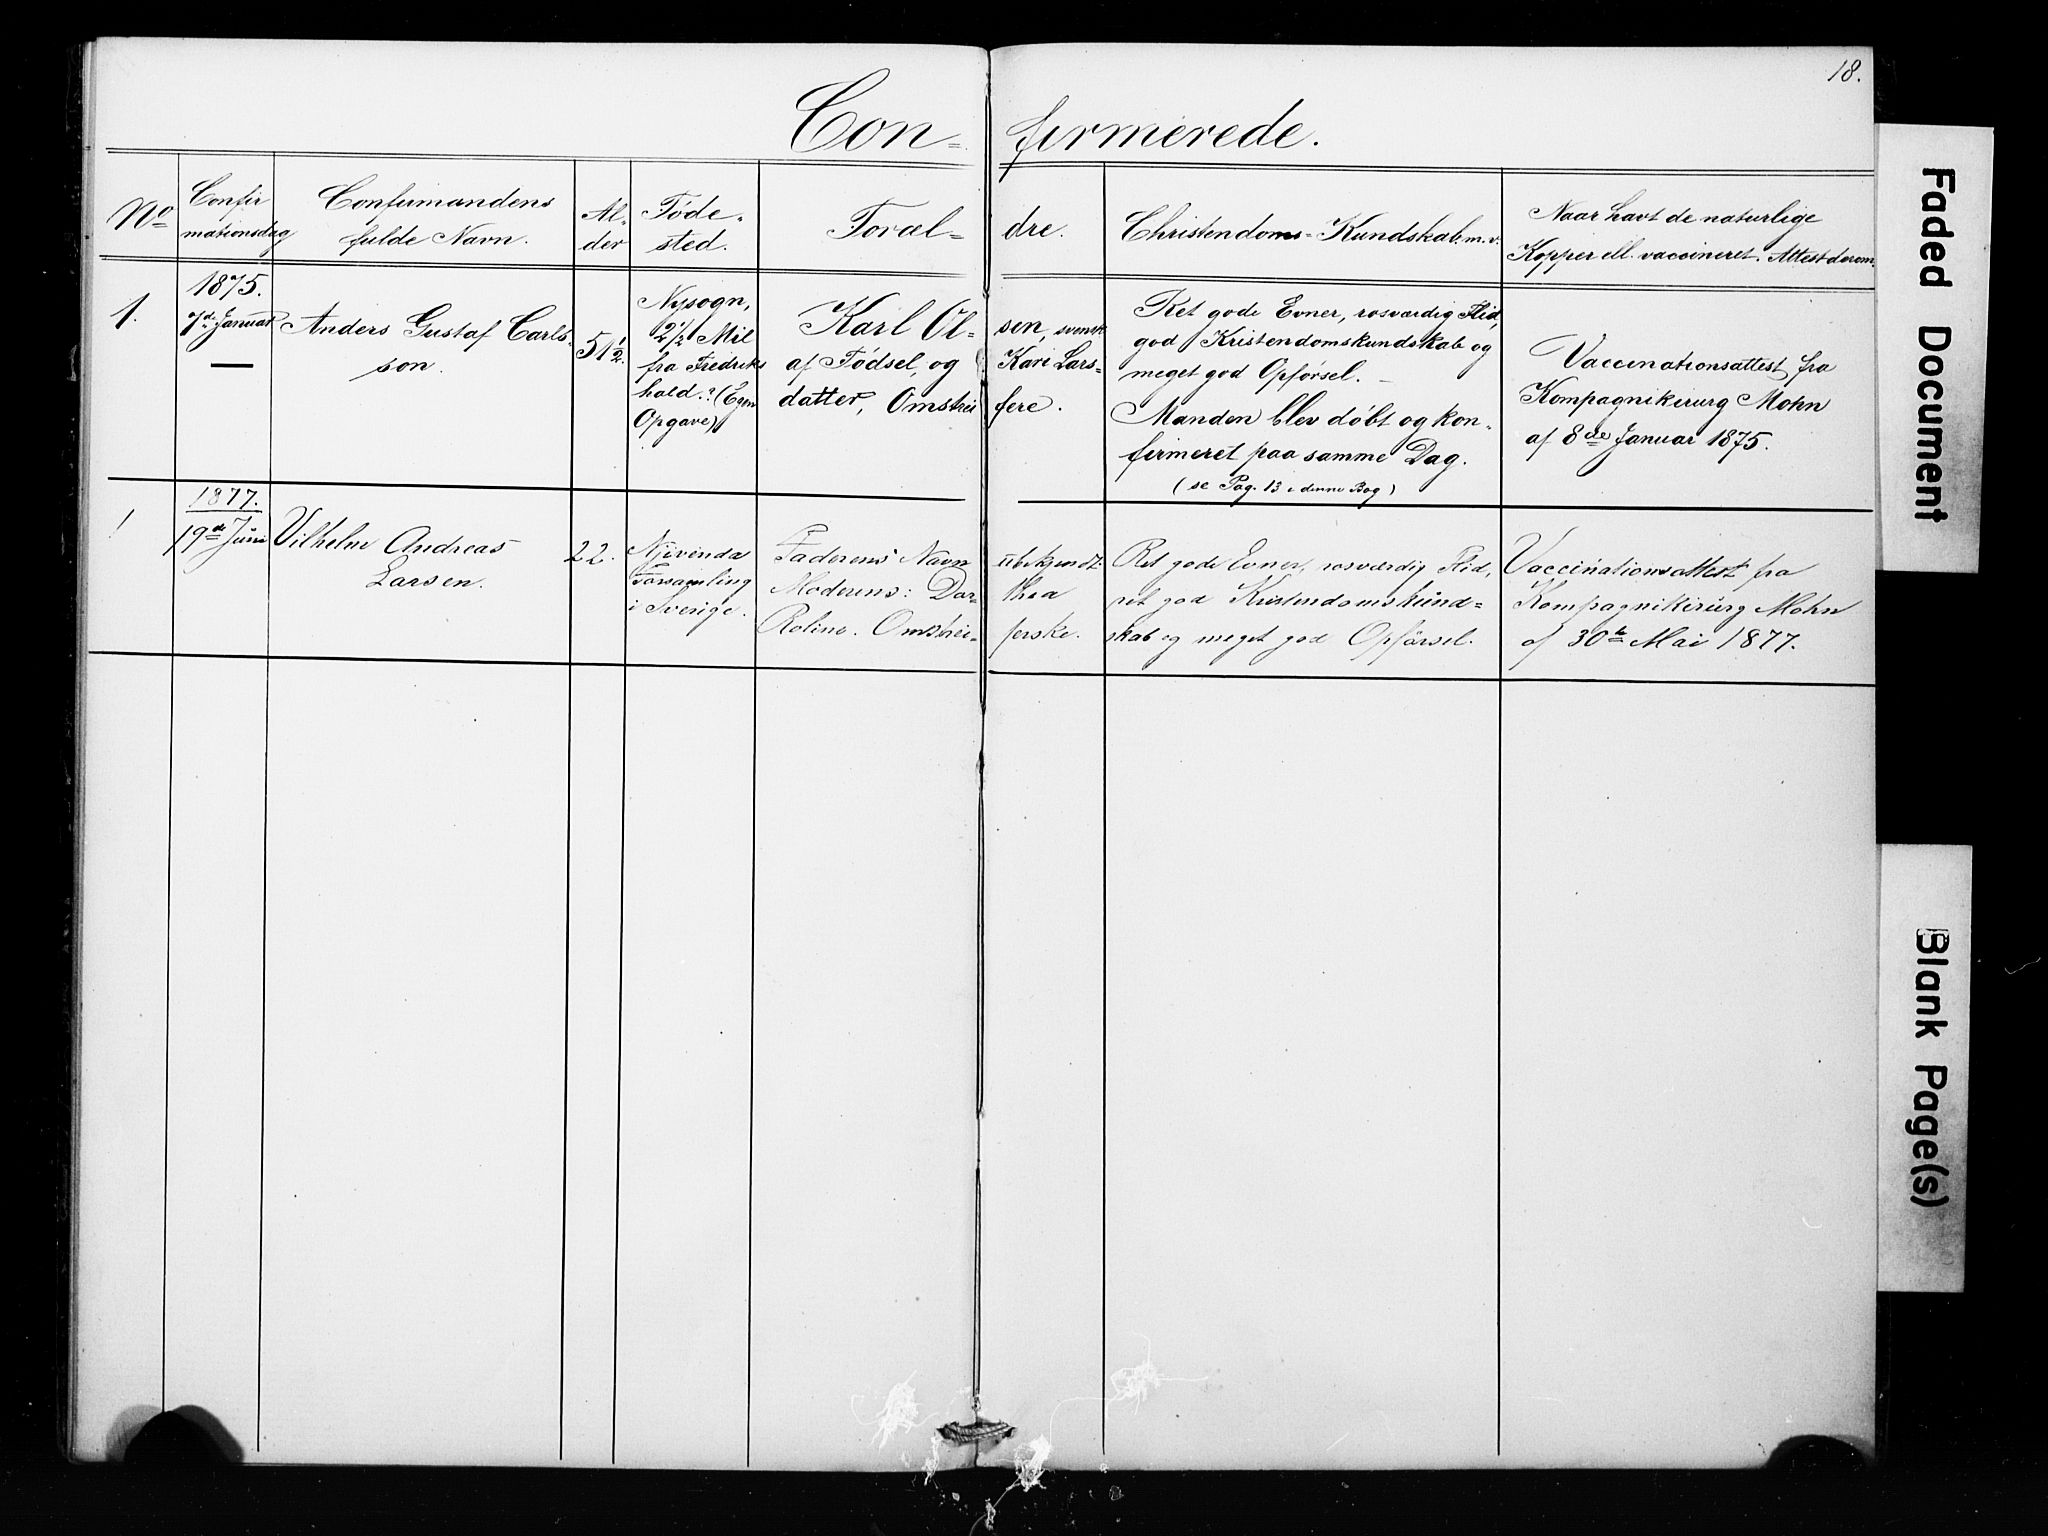 18.
Con- firmerede.
No
Confir
mationsdag
Confirmandens
fulde Navn.
Al-
der
Føde-
sted.
Foræl- dre.
Christendoms-Kundskab. m. v.
Naar havt de naturlige
Kopper ell. vaccineret. Attest derom.
1.
1875.
7de Januar
—
Anders Gustaf Carls-
son.
51 1/2.
Nysogn,
2 1/2 Mil
fra Fredriks
hald.? (Egen
Opgave)
Karl Ol- sen, svensk
af Fødsel, og Kari Lars-
datter, Omstrei fere.
Ret gode Evner, rosværdig Flid,
god Kristendomskundskab og
meget god Opførsel. –
Manden blev døbt og kon-
firmeret paa samme Dag.
(se Pag. 13 i denne Bog)
Vaccinationsattest fra
Kompagnikirurg Mohn
af 8de Januar 1875.
1
1877.
19de Juni
Vilhelm Andreas
Larsen.
22.
Njivenda
Forsamling
i Sverige.
Faderens Navn ubekjendt.
Moderens: Dor- thea
Roline. Omstrei- ferske.
Ret gode Evner, rosværdig Flid,
ret god Kristendomskund=
skab og meget god Opførsel.
Vaccinationsattest fra
Kompagnikirurg Mohn
af 30te Mai 1877.
Faded Document
Blank Page(s)